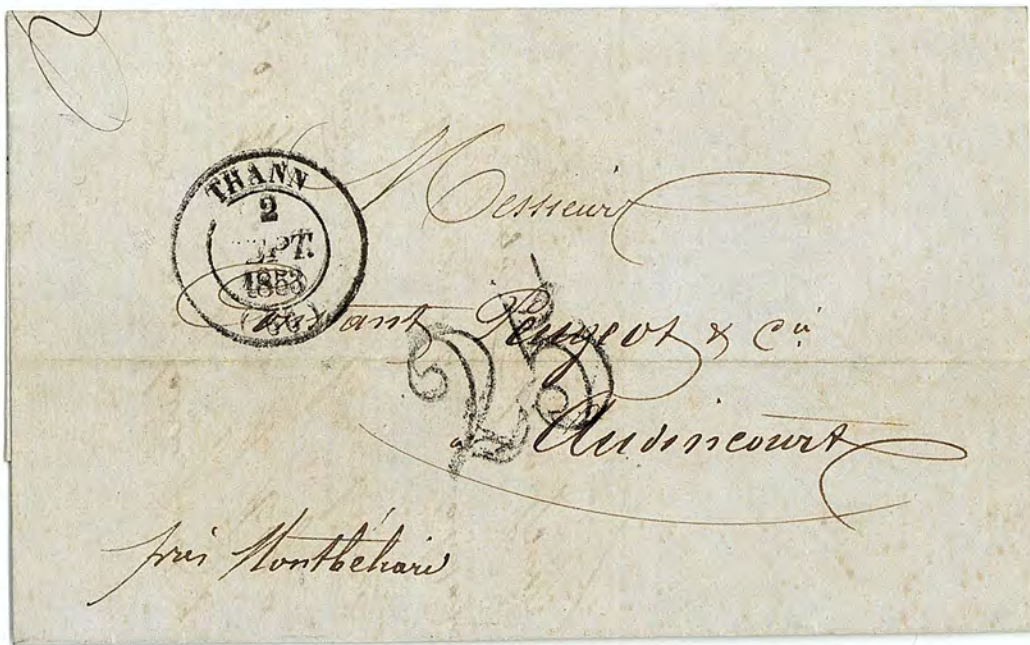 THANN
2
SEPT.
1853
(66)
Messieurs
Constant Peugeot & Cie
25
à Audincourt
près Montbéliard